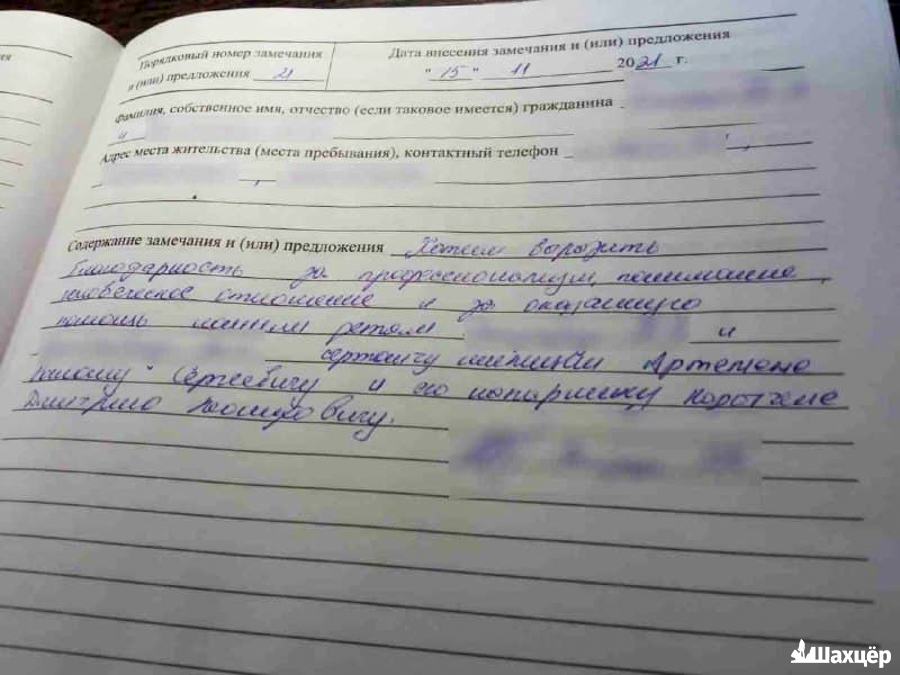 Порядковый номер замечания
и (или) предложения 21
Дата внесения замечания и (или) предложения
" 15 " 11 2021 г.
фамилия, собственное имя, отчество (если таковое имеется) гражданина
и
Адрес места жительства (места пребывания), контактный телефон
Содержание замечания и (или) предложения Хотим выразить
благодарность за профессионализм, понимание,
человеческое отношение и за оказанную
помощь нашим детям и
сержанту милиции Артемоно
Сергеевичу и его напарнику Коротчене
Дмитрию
Шахцёр